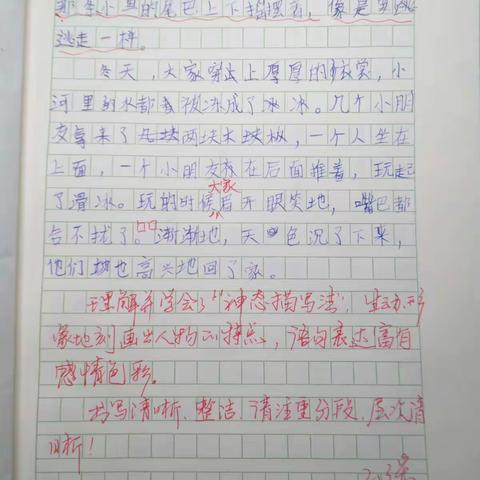 那条小鱼的尾巴上下摇摆着，像是要
逃走一样。
冬天，大家穿上厚厚的衣裳，小
河里的水都被冻成了冰。几个小朋
友拿来了两块木板，一个人坐在
上面，一个小朋友在后面推着，玩起
了滑冰。玩的时候大家眉开眼笑地，嘴巴都
合不拢了。渐渐地，天色沉了下来，
他们也高兴地回了家。
理解并学会了“神态描写法”，生动形
象地刻画出人物的特点，语句表达富有
感情色彩。
书写清晰、整洁，请注重分段，层次清
晰！